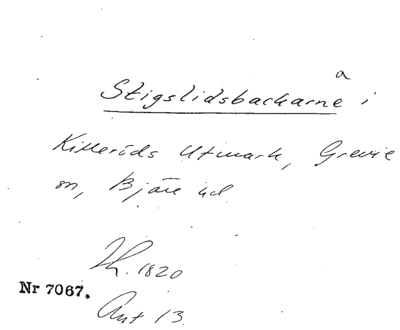 Stigslidsbackarne a i
Killeröds Utmark, Grevie
sn, Bjäre hd
Th. 1820
Nr 7067.
Ant 13